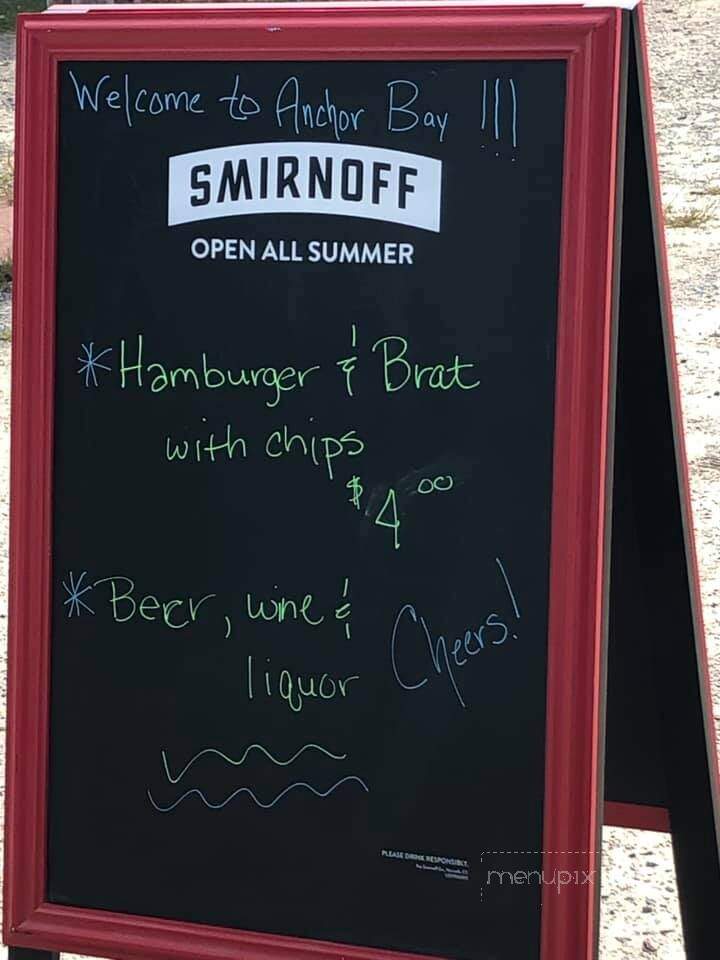 Welcome to Anchor Bay !!!
SMIRNOFF
OPEN ALL SUMMER
* Hamburger & Brat
with chips
$4.00
* Beer, wine &
liquor
Cheers!
PLEASE DRINK RESPONSIBLY.
menupix